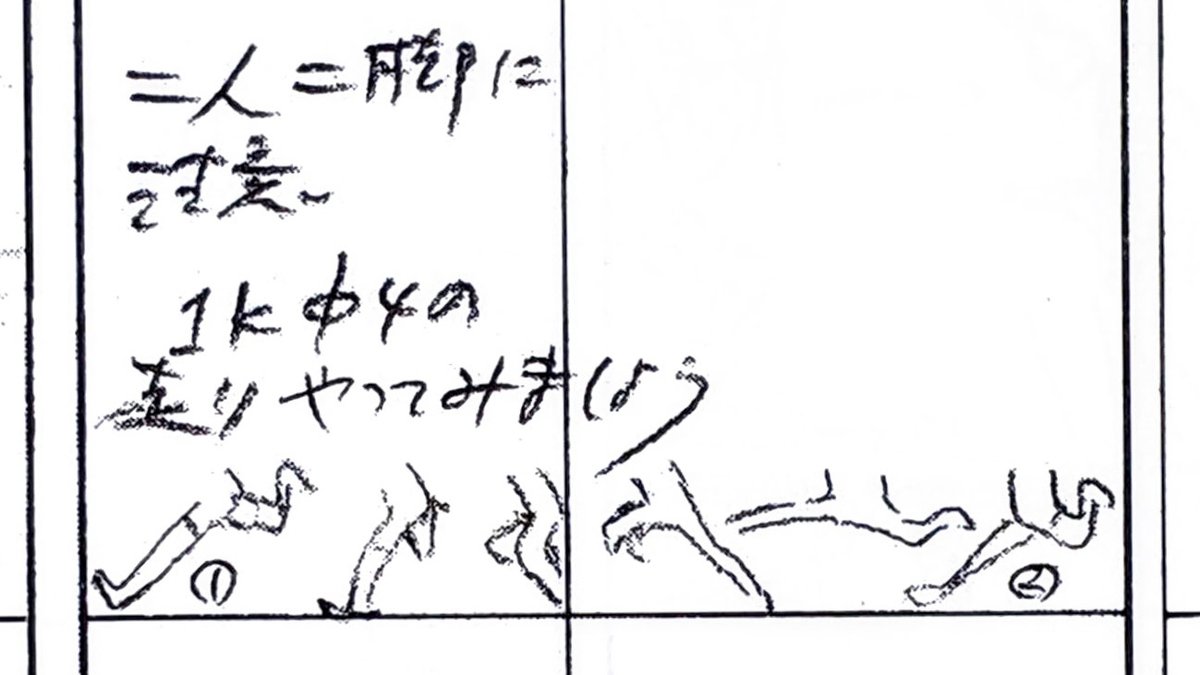 二人二脚に
注意。
1k中4の
走りやってみましょう
① ②